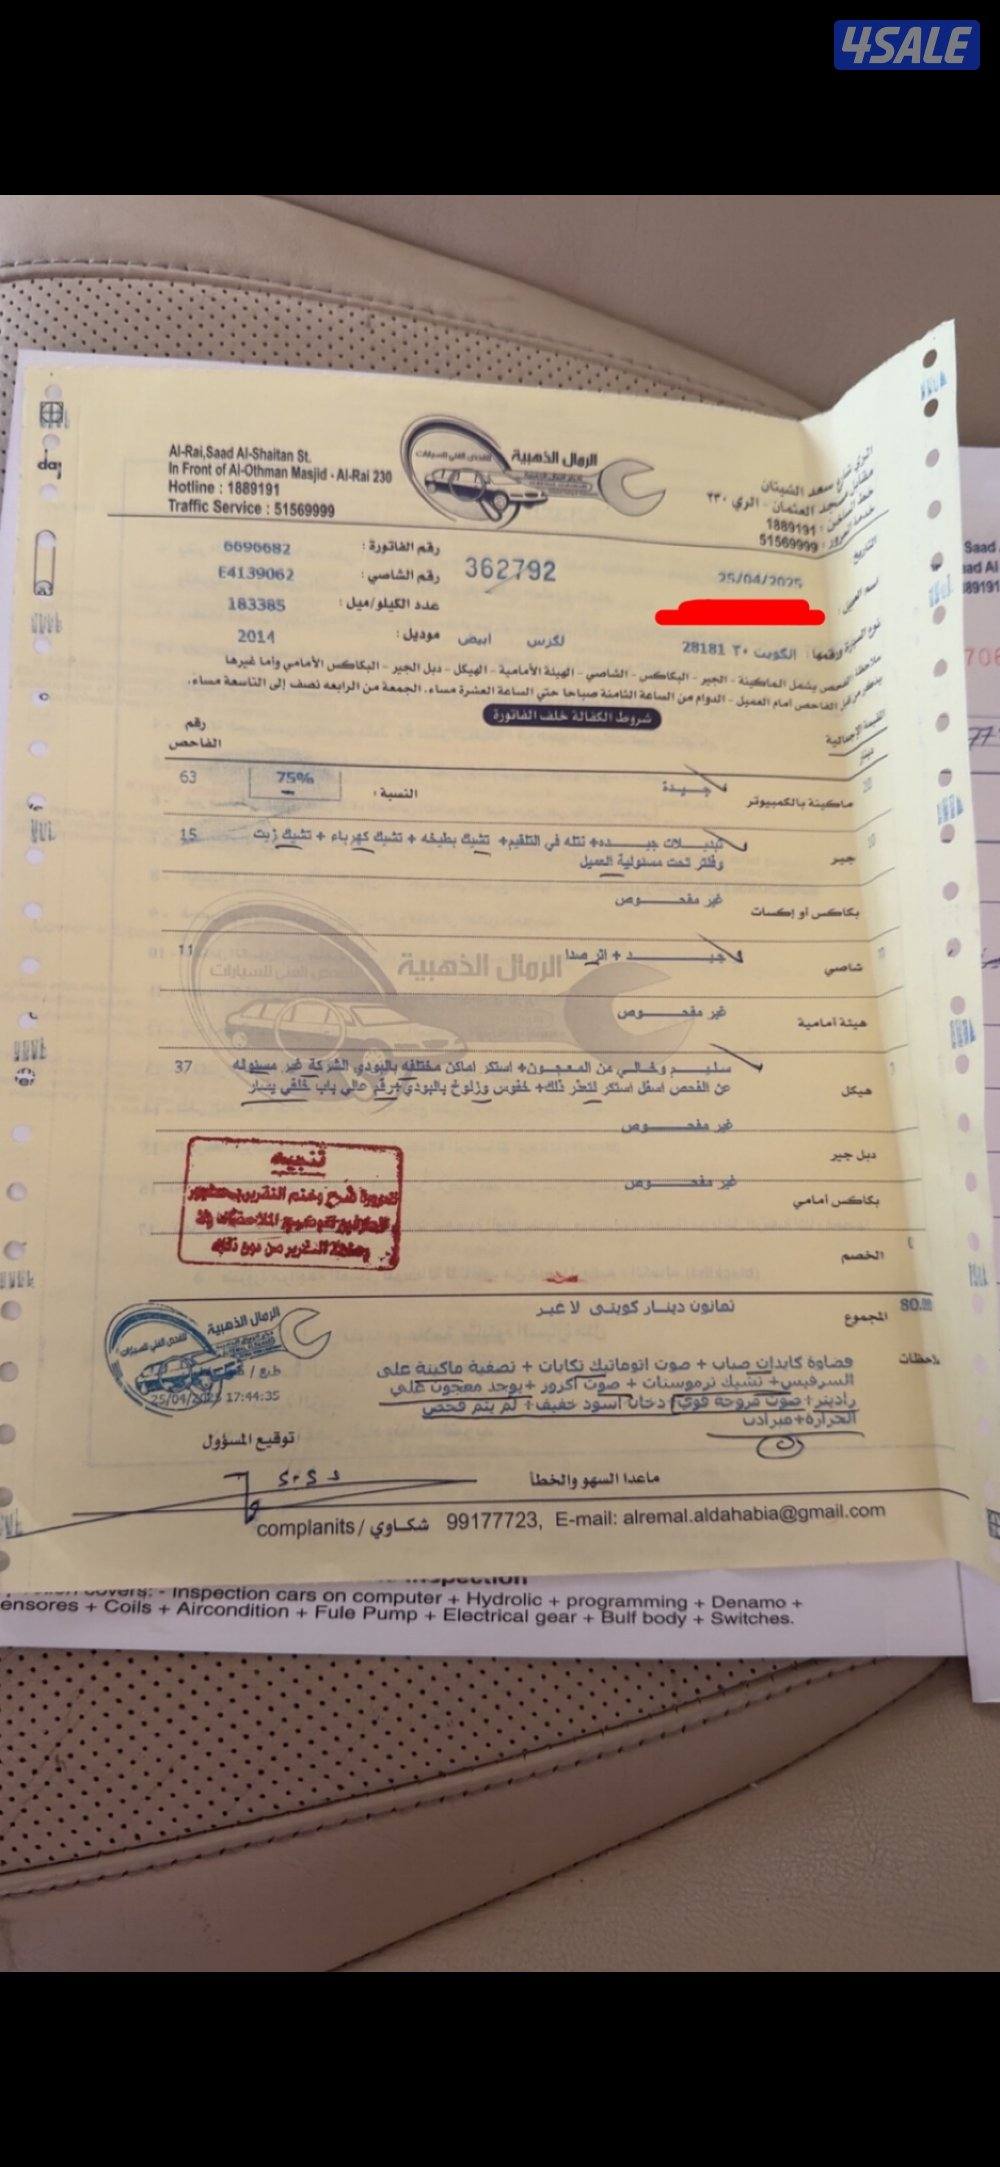 4SALE
Al-Rai,Saad Al-Shaitan St.
In Front of Al-Othman Masjid - Al-Rai 230
Hotline : 1889191
Traffic Service : 51569999
الرمال الذهبية
للفحص الفني للسيارات
الري شارع سعد الشيتان
مقابل مسجد العثمان - الري ٢٣٠
خط الساخن : 1889191
خدمة المرور : 51569999
رقم الفاتورة : 6696682
التاريخ : 25/04/2025
362792
رقم الشاصي : E4139062
اسم العميل :
عدد الكيلو/ميل : 183385
نوع السيارة ورقمها : الكويت ٢٠ 28181
لكزس
ابيض
موديل : 2014
ملاحظة الفحص يشمل الماكينة - الجير - البكاكس - الشاصي - الهيئة الأمامية - الهيكل - دبل الجير - البكاكس الأمامي وأما غيرها
يذكر من قبل الفاحص امام العميل - الدوام من الساعة الثامنة صباحا حتي الساعة العشرة مساء، الجمعة من الرابعه نصف إلى التاسعة مساء.
شروط الكفالة خلف الفاتورة
القيمة الإجمالية
دينار
رقم
الفاحص
20 ماكينة بالكمبيوتر جـيـدة النسبة : 75% 63
10 جير تبديـلات جيـــده+ نتله في التلقيم+ تشيك بطيخه + تشيك كهرباء + تشيك زيت 15
وفلتر تحت مسئولية العميل
بكاكس أو إكسات غير مفحـــوص
شاصي جيـــــد + اثر صدا 11
هيئة أمامية غير مفحـــوص
هيكل سليـــم وخـالـي من المعجـون+ استكر اماكن مختلفه بالبودي الشركة غير مسئوله 37
عن الفحص اسفل استكر لتعذر ذلك+ خفوس وزلوخ بالبودي+رقم عالي باب خلفي يسار
دبل جير غير مفحـــوص
بكاكس أمامي غير مفحـــوص
الخصم
تنبيه
المجموع 80.000 ثمانون دينـار كويتـى لا غير
ملاحظات
فضاوة كابدان صباب + صوت اتوماتيك تكايات + تصفية ماكينة على
السرفيس+ تشيك ثرموستات + صوت اكزوز +يوجد معجون علي
راديتر+صوت مروحة قوي+ دخان اسود خفيف+ لم يتم فحص
الحرارة+مبرادب
الرمال الذهبية
25/04/2025 17:44:35
توقيع المسؤول
ماعدا السهو والخطأ
complanits / شكـاوي 99177723, E-mail: alremal.aldahabia@gmail.com
covers: - Inspection cars on computer + Hydrolic + programming + Denamo +
ensores + Coils + Aircondition + Fule Pump + Electrical gear + Bulf body + Switches.